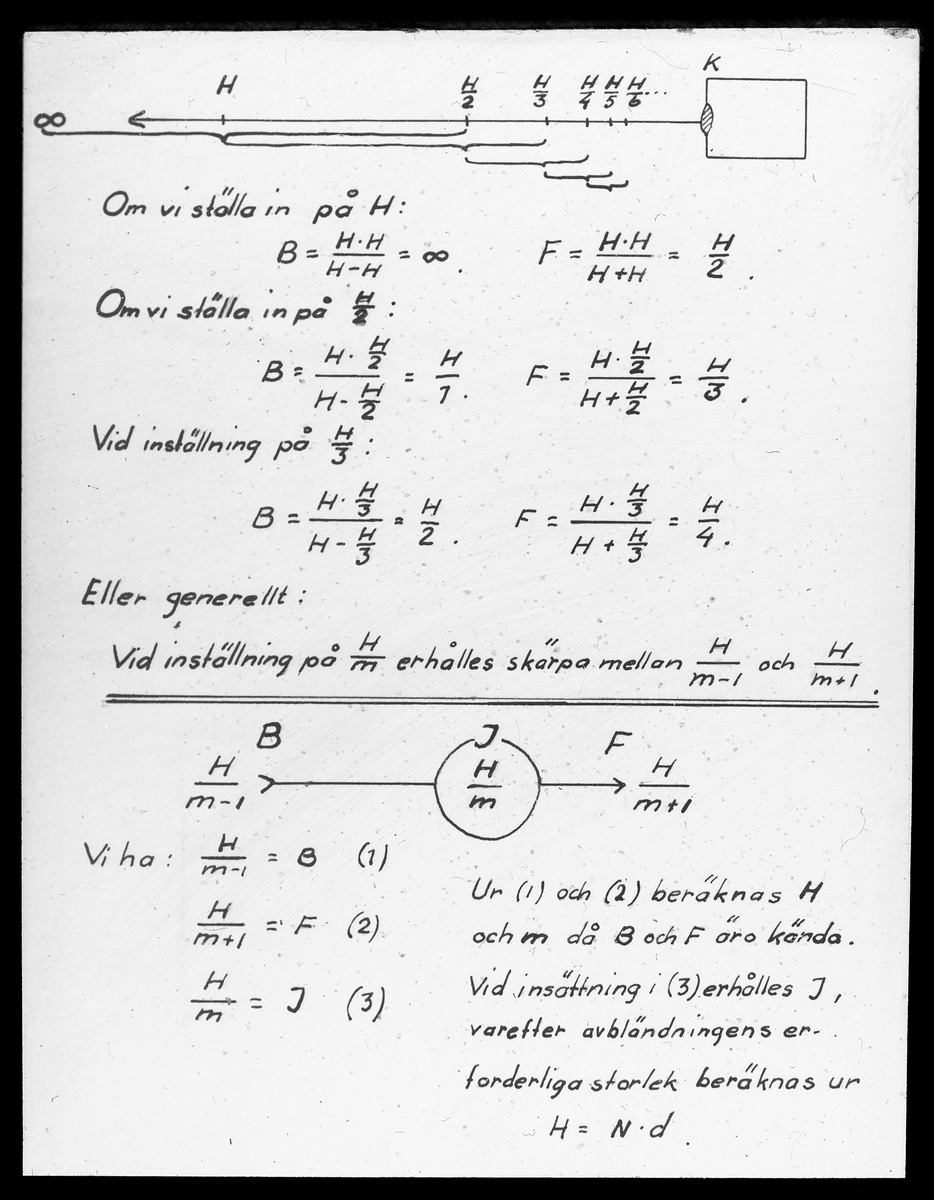 K
∞ H H/2 H/3 H/4 H/5 H/6...
Om vi ställa in på H:
B = H·H/H-H = ∞. F = H·H/H+H = H/2.
Om vi ställa in på H/2:
B = H·H/2 / H-H/2 = H/1. F = H·H/2 / H+H/2 = H/3.
Vid inställning på H/3:
B = H·H/3 / H-H/3 = H/2. F = H·H/3 / H+H/3 = H/4.
Eller generellt:
Vid inställning på H/m erhålles skärpa mellan H/m-1 och H/m+1.
B J F
H/m-1 H/m H/m+1
Vi ha: H/m-1 = B (1)
H/m+1 = F (2)
H/m = J (3)
Ur (1) och (2) beräknas H
och m då B och F äro kända.
Vid insättning i (3) erhålles J,
varefter avbländningens er-
forderliga storlek beräknas ur
H = N·d.